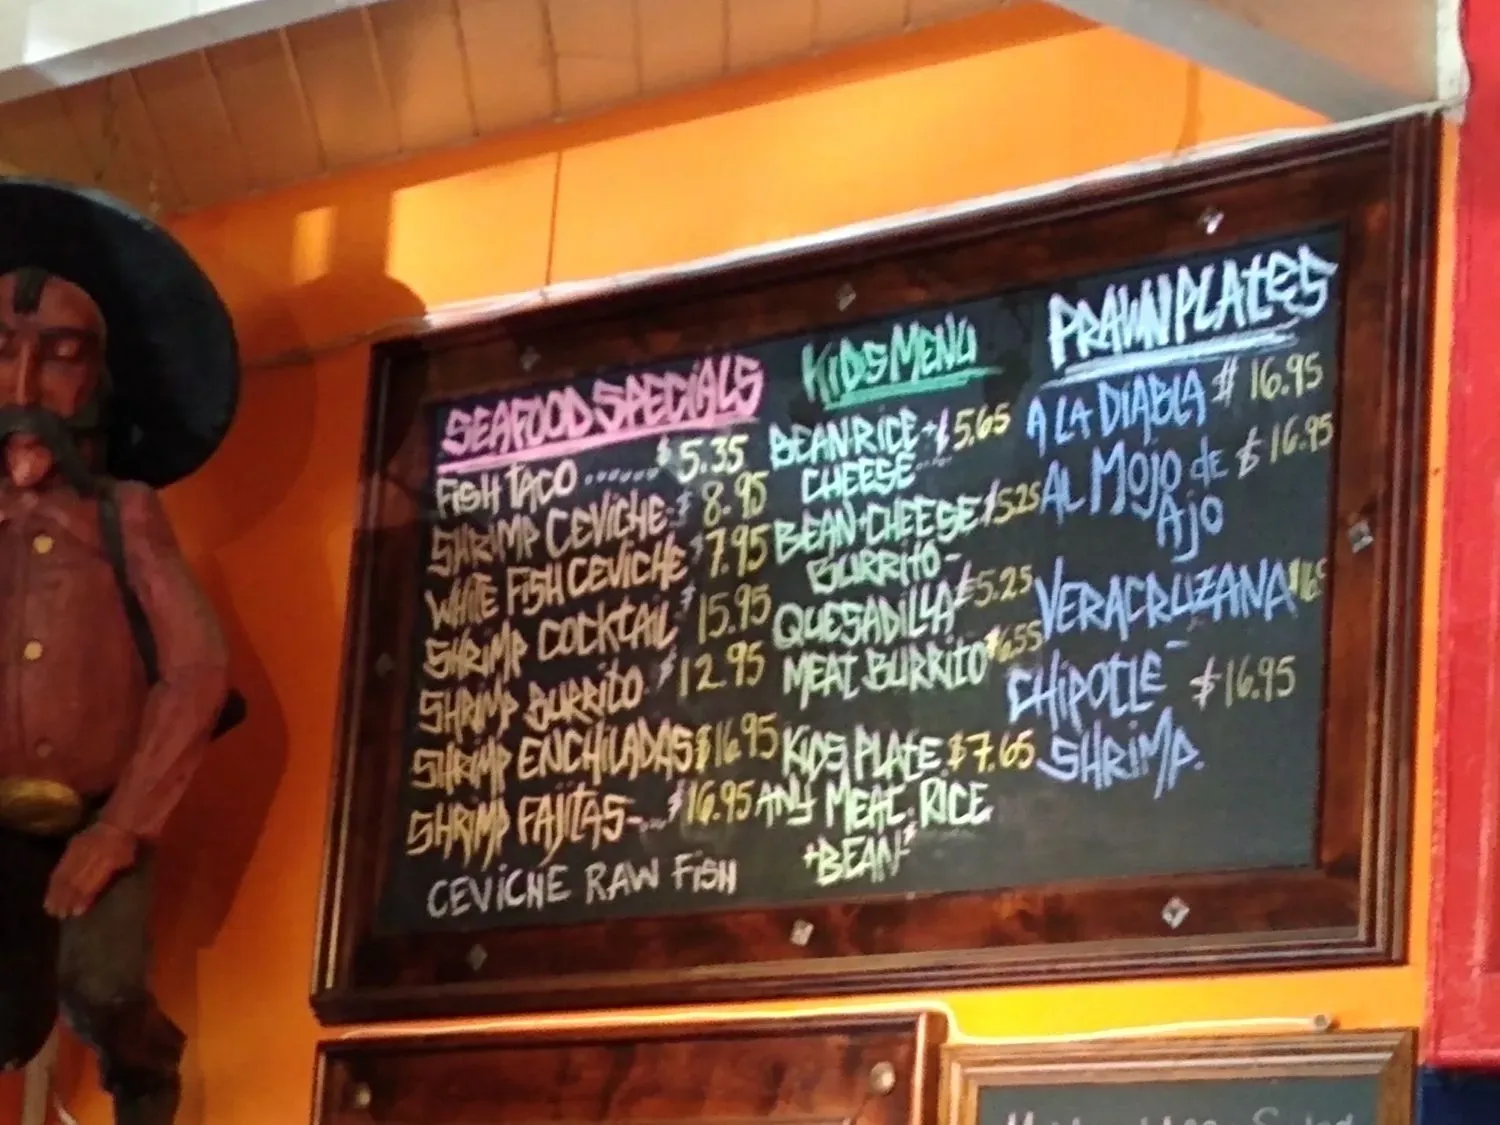 SEAFOOD SPECIALS
FISH TACO ...... $5.35
SHRIMP CEVICHE $8.95
WHITE FISH CEVICHE $7.95
SHRIMP COCKTAIL $15.95
SHRIMP BURRITO $12.95
SHRIMP ENCHILADAS $16.95
SHRIMP FAJITAS-... $16.95
CEVICHE RAW FISH
KIDS MENU
BEAN·RICE + $5.65
CHEESE...
BEAN+CHEESE $5.25
BURRITO-
QUESADILLA $5.25
MEAT BURRITO $6.55
KIDS PLATE $7.65
ANY MEAT. RICE
+BEAN
PRAWN PLATES
A LA DIABLA $16.95
AL MOJO de $16.95
AJO
VERACRUZANA
CHIPOTLE $16.95
SHRIMP.